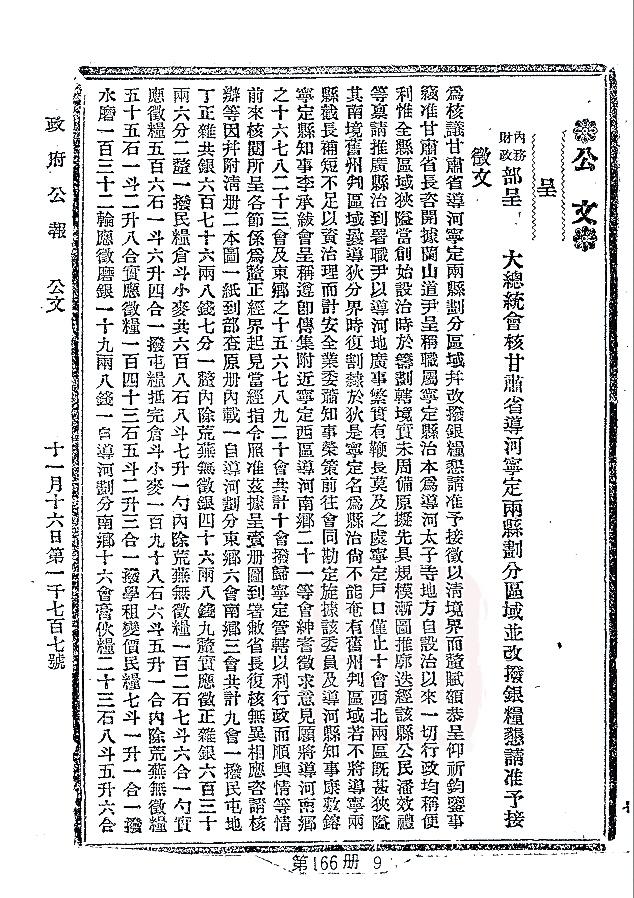 公文
呈
內務財政部呈　大總統會核甘肅省導河寧定兩縣劃分區域並改撥銀糧懇請准予接
徵文
爲核議甘肅省導河寧定兩縣劃分區域幷改撥銀糧懇請准予接徵以清境界而釐賦額恭呈仰祈鈞鑒事
竊准甘肅省長咨開據蘭山道尹呈稱職屬寧定縣治本爲導河太子寺地方自設治以來一切行政均稱便
利惟全縣區域狹隘當創始設治時於籌劃轄境實未周備原擬先具規模漸圖推廓迭經該縣公民潘效禮
等稟請推廣縣治到署職尹以導河地廣事繁實有鞭長莫及之虞寧定戶口僅止十會西北兩區旣甚狹隘
其南境舊州判區域曩導狄分界時復割隸於狄是寧定名爲縣治尙不能奄有舊州判區域若不將導寧兩
縣截長補短不足以資治理而計安全業委蕭知事榮策前往會同勘定旋據該委員及導河縣知事康敷鎔
寧定縣知事李承紱會呈稱遵卽傳集附近寧定西區導河南鄉二十一等會紳耆徵求意見願將導河南鄉
之十六七八二十三會及東鄉之十五六七八九二十會共計十會撥歸寧定管轄以利行政而順輿情等情
前來核閱所呈各節係爲釐正經界起見當經指令照准茲據呈賫册圖到署敝省長復核無異相應咨請核
辦等因幷附清册二本圖一紙到部查原册內載一自導河劃分東鄉六會南鄉三會共計九會一撥民屯地
丁正雜共銀六百七十六兩八錢七分一釐內除荒蕪無徵銀四十六兩八錢九釐實應徵正雜銀六百三十
兩六分二釐一撥民糧倉斗小麥共六百八石八斗七升一勺內除荒蕪無徵糧一百二石七斗六合一勺實
應徵糧五百六石一斗六升四合一撥屯糧抵完倉斗小麥一百九十八石六斗五升一合內除荒蕪無徵糧
五十五石一斗二升八合實應徵糧一百四十三石五斗二升三合一撥學租變價民糧七斗一升一合一撥
水磨一百三十二輪應徵磨銀一十九兩八錢一自導河劃分南鄉十六會膏伙糧二十三石八斗五升六合
政府公報　公文　十一月十六日第一千七百七號
第166册 9